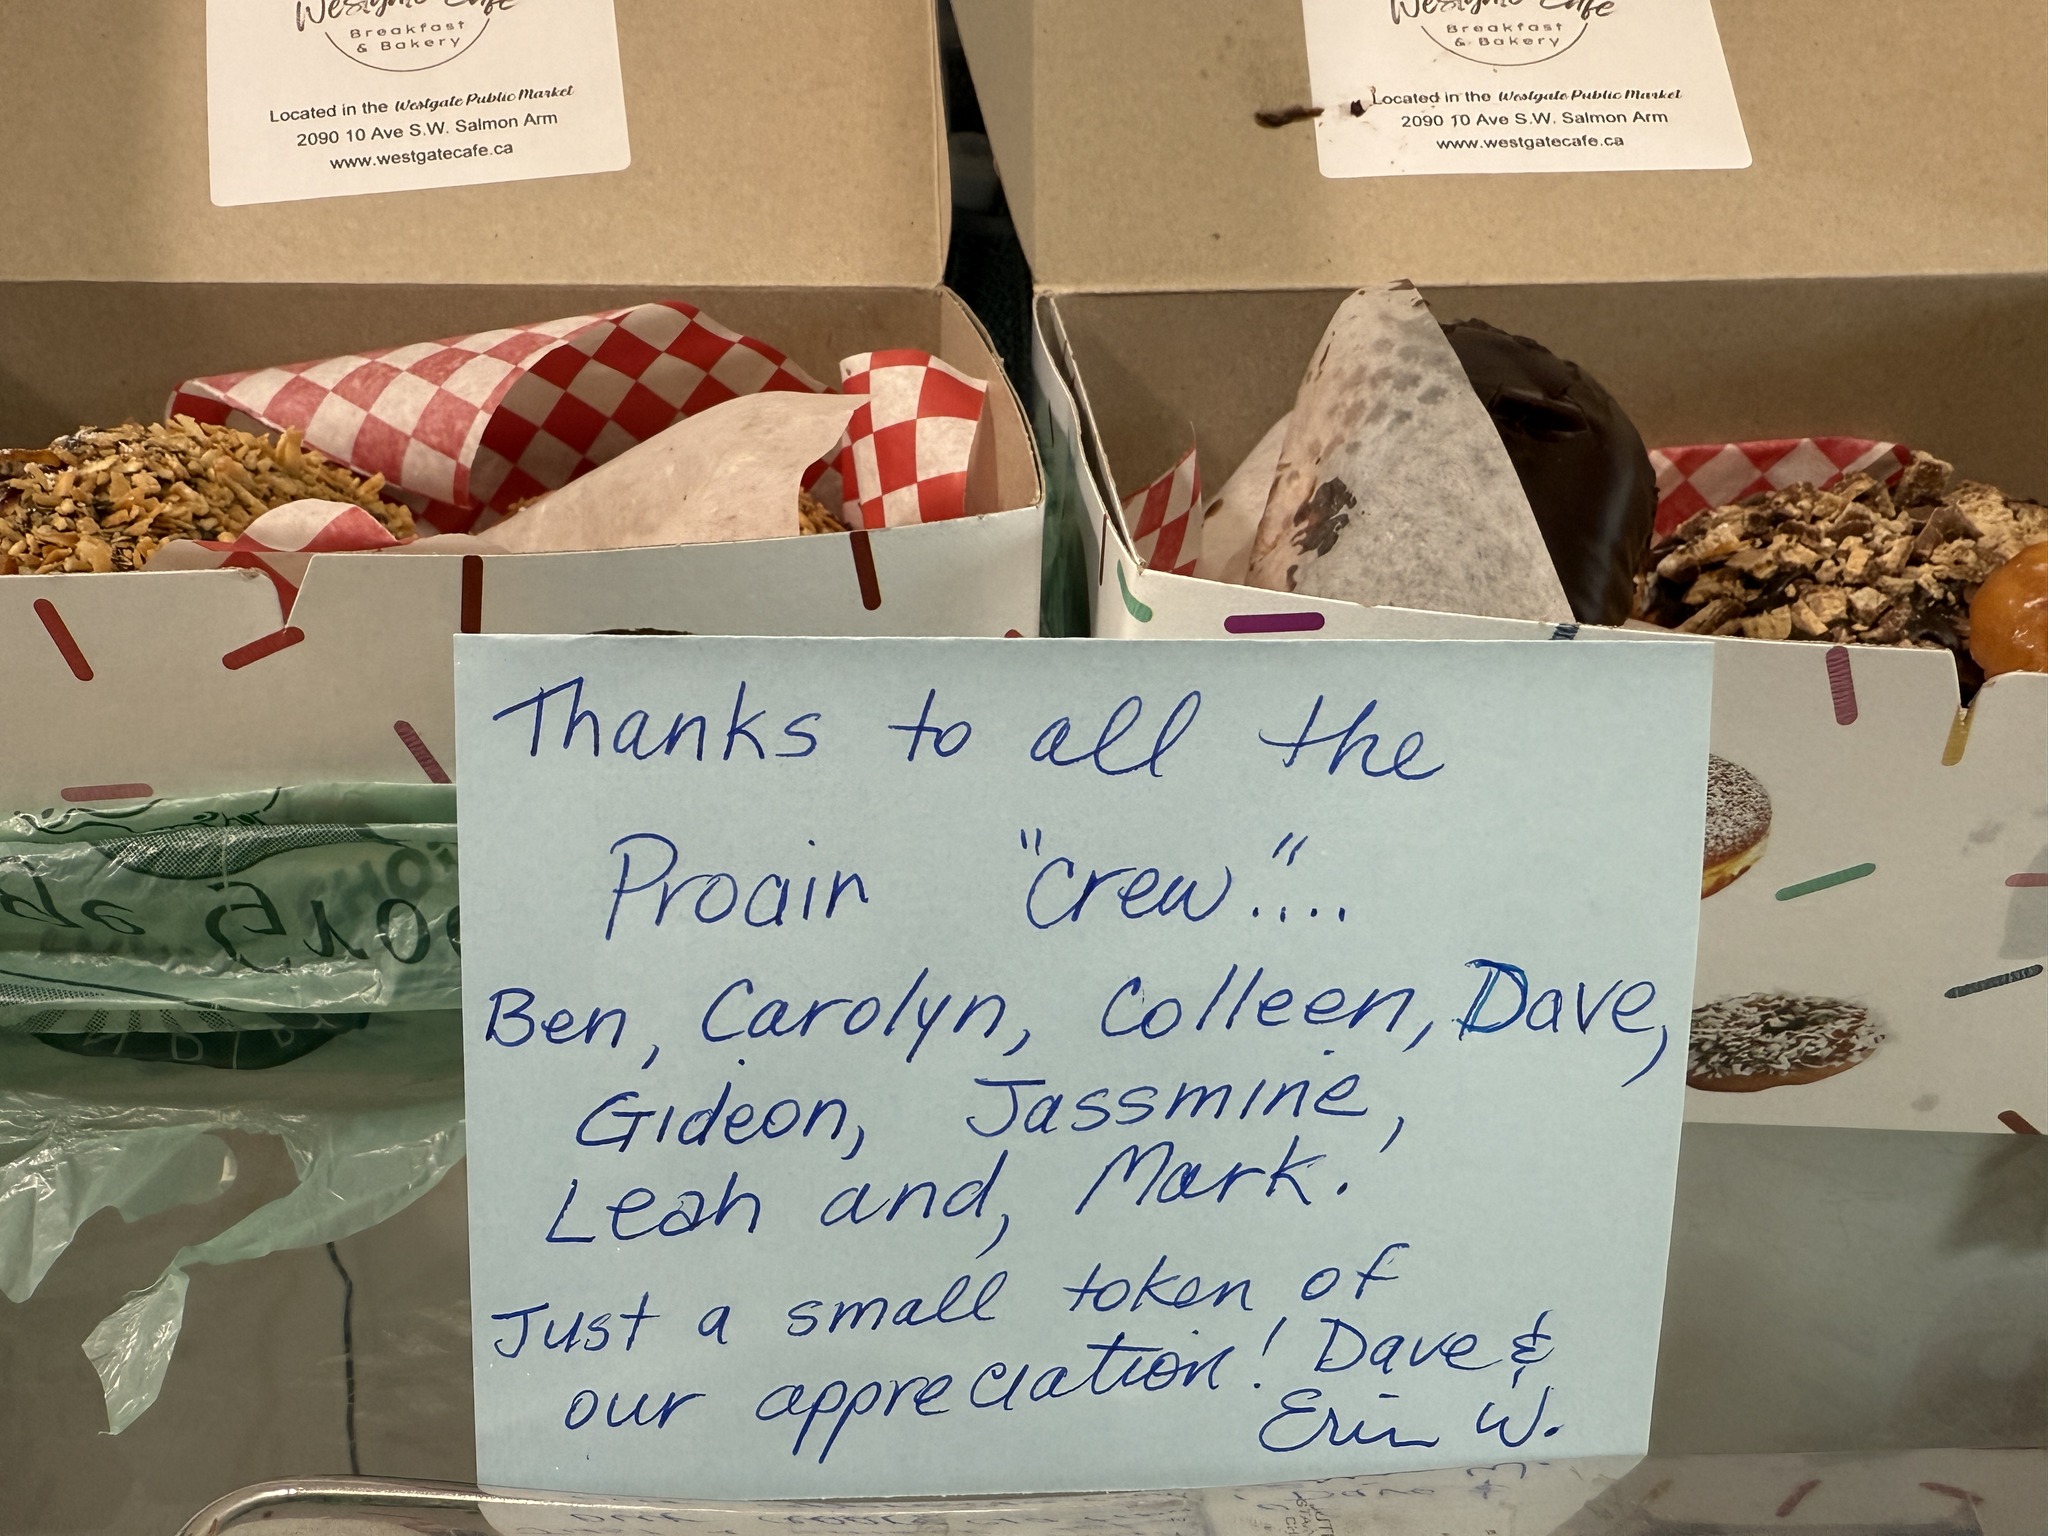 Westgate Cafe
Breakfast
& Bakery
Located in the Westgate Public Market
2090 10 Ave S.W. Salmon Arm
www.westgatecafe.ca
Westgate Cafe
Breakfast
& Bakery
Located in the Westgate Public Market
2090 10 Ave S.W. Salmon Arm
www.westgatecafe.ca
Thanks to all the
Proair "Crew"....
Ben, Carolyn, Colleen, Dave,
Gideon, Jassmine,
Leah and, Mark.
Just a small token of
our appreciation! Dave &
Erin W.